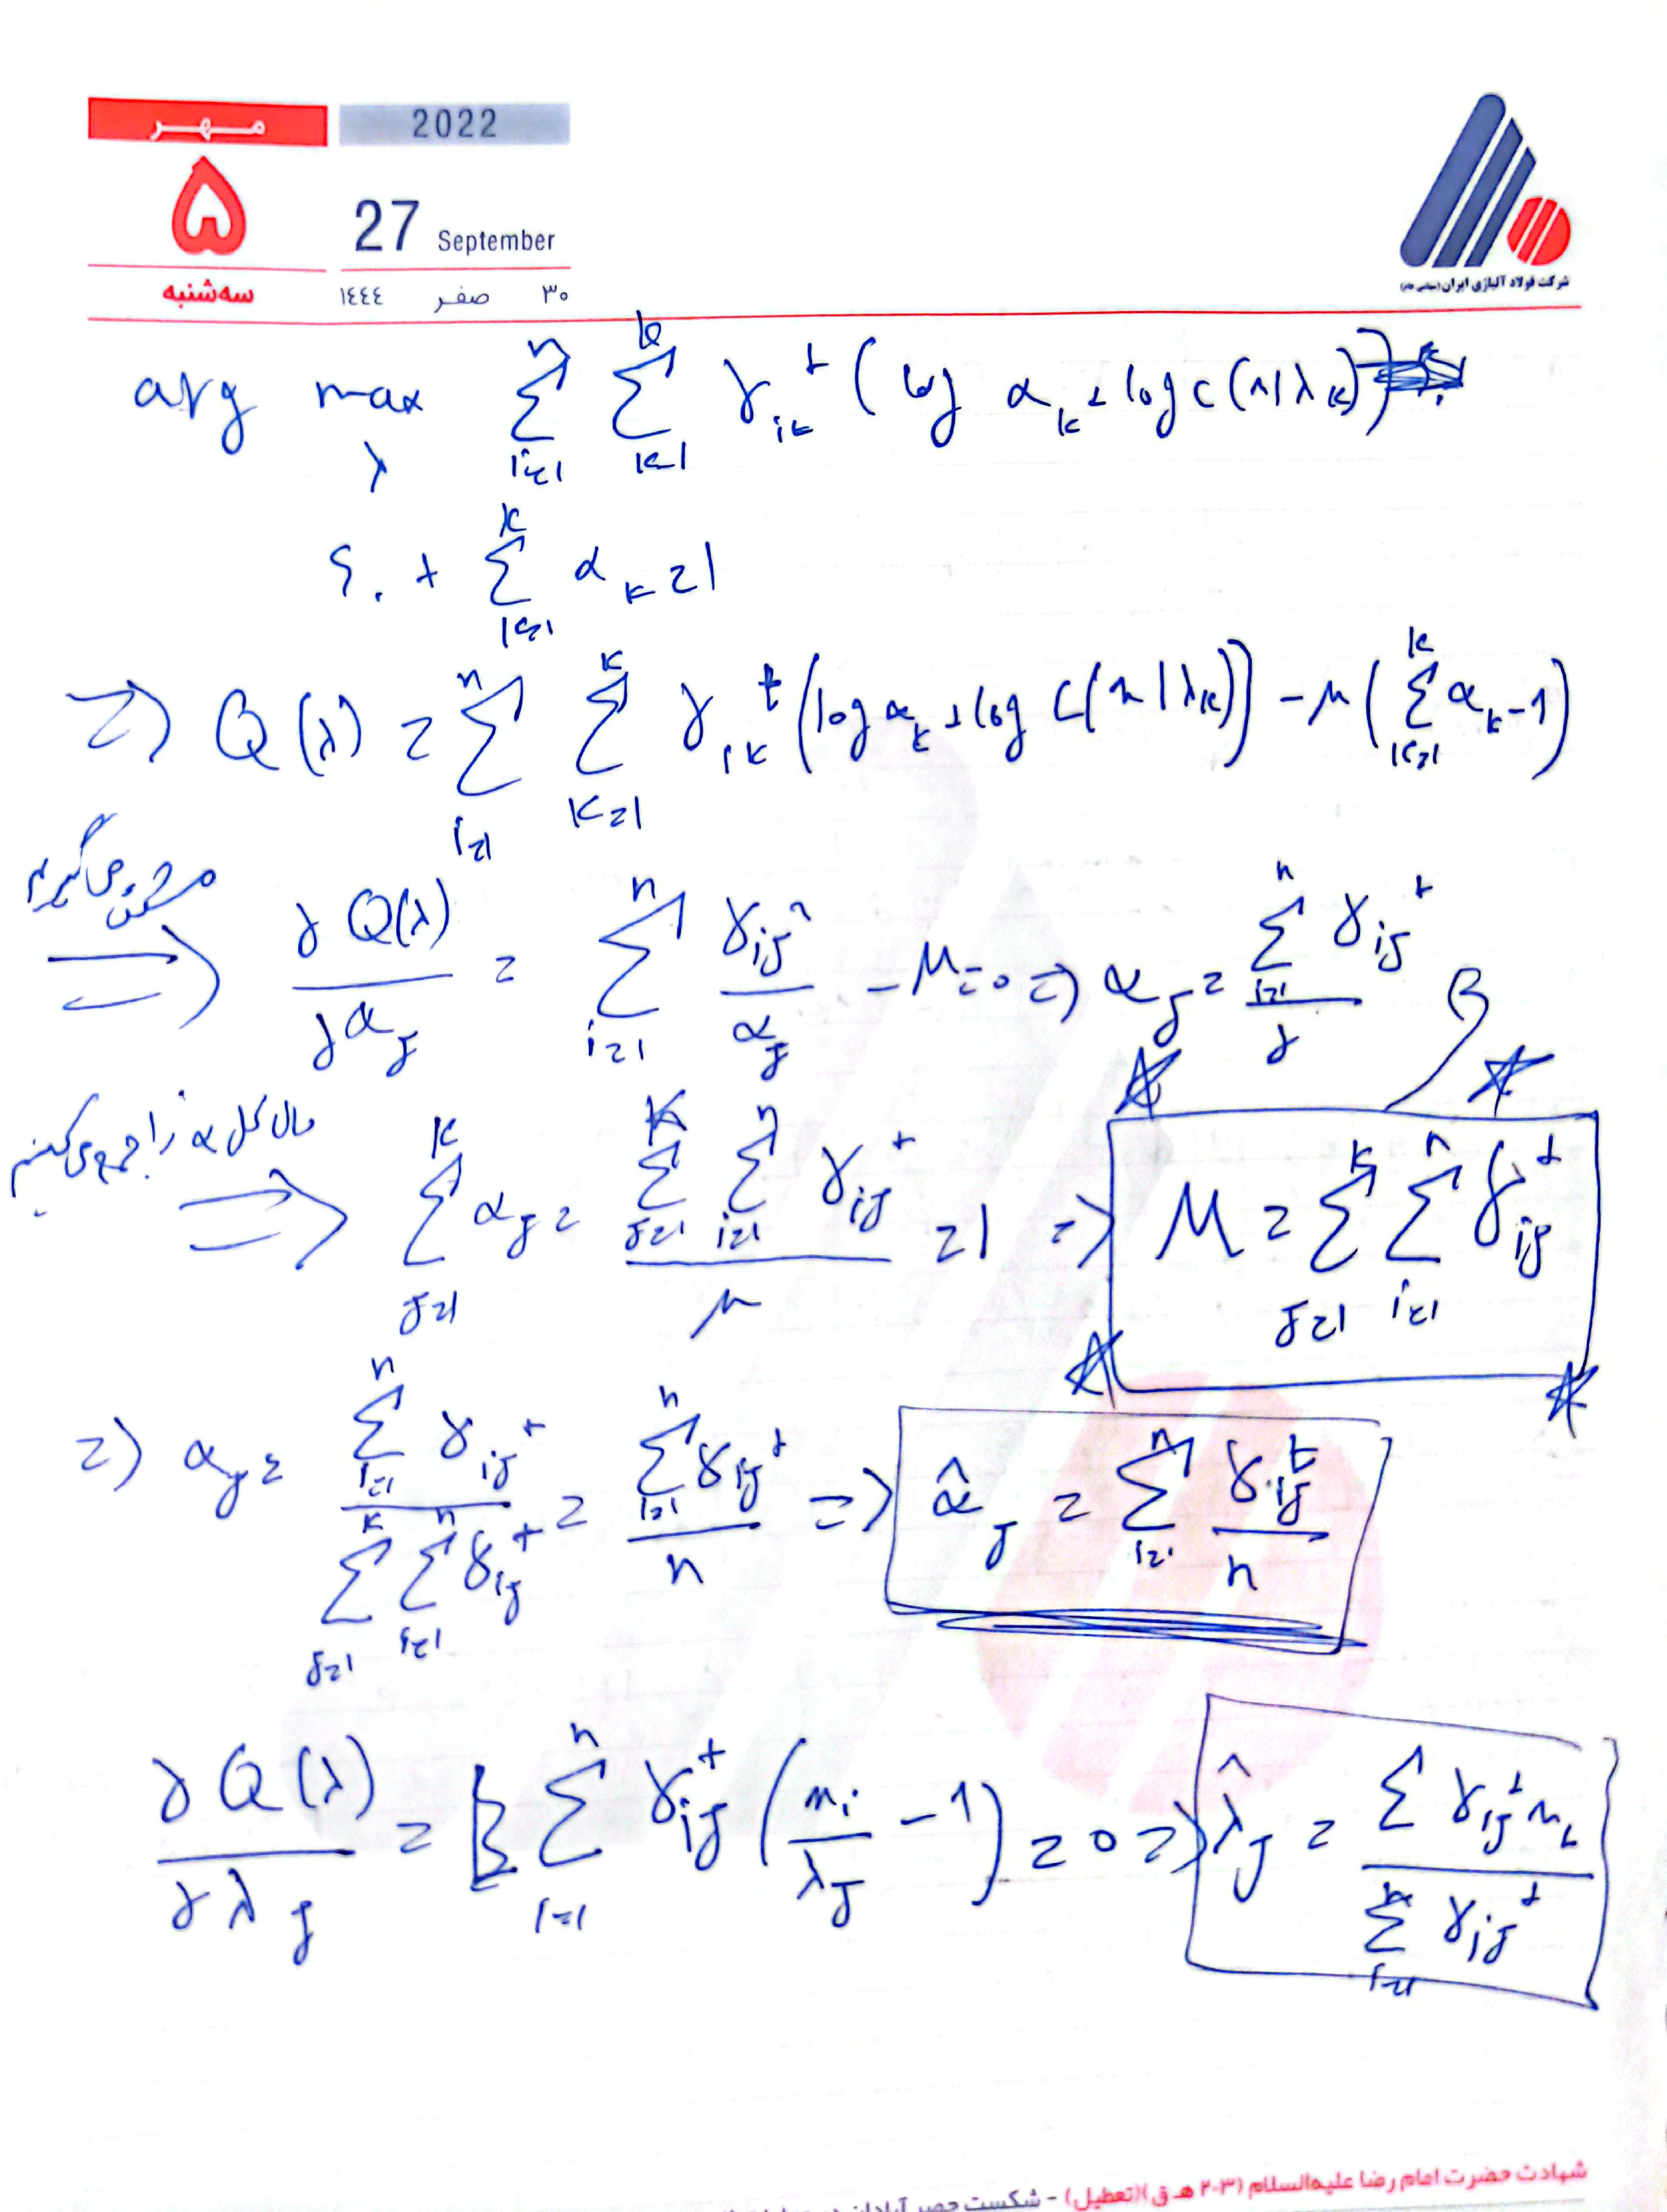 مهر
2022
۵
27 September
سه‌شنبه
١٤٤٤ صفر ۳۰
شرکت فولاد آلیاژی ایران (سهامی عام)
arg max_λ Σ_{i=1}^{n} Σ_{k=1}^{k} γ_{ik}^t (log α_k + log C(x|λ_k))
s.t Σ_{k=1}^{k} α_k = 1
=> Q(λ) = Σ_{i=1}^{n} Σ_{k=1}^{k} γ_{ik}^t (log α_k + log C(x|λ_k)) - μ (Σ_{k=1}^{k} α_k - 1)
مشتق می‌گیریم
=> ∂Q(λ)/∂α_j = Σ_{i=1}^{n} γ_{ij}^n/α_j - μ = 0 => α_j = Σ_{i=1}^{n} γ_{ij}^t / γ
حال کل α ها را جمع می‌کنیم
=> Σ_{j=1}^{k} α_j = Σ_{j=1}^{k} Σ_{i=1}^{n} γ_{ij}^t / μ = 1 => μ = Σ_{j=1}^{k} Σ_{i=1}^{n} γ_{ij}^t
=> α_j = Σ_{i=1}^{n} γ_{ij}^t / Σ_{j=1}^{k} Σ_{i=1}^{n} γ_{ij}^t = Σ_{i=1}^{n} γ_{ij}^t / n => α̂_j = Σ_{i=1}^{n} γ_{ij}^t / n
∂Q(λ)/∂λ_j = Σ_{i=1}^{n} γ_{ij}^t (x_i/λ_j - 1) = 0 => λ̂_j = Σ γ_{ij}^t x_i / Σ_{i=1}^{n} γ_{ij}^t
شهادت حضرت امام رضا علیه‌السلام (۲۰۳ هـ ق)(تعطیل) - شکست حصر آبادان در